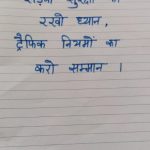 सड़क सुरक्षा का
रखो ध्यान,
ट्रैफिक नियमों का
करो सम्मान ।